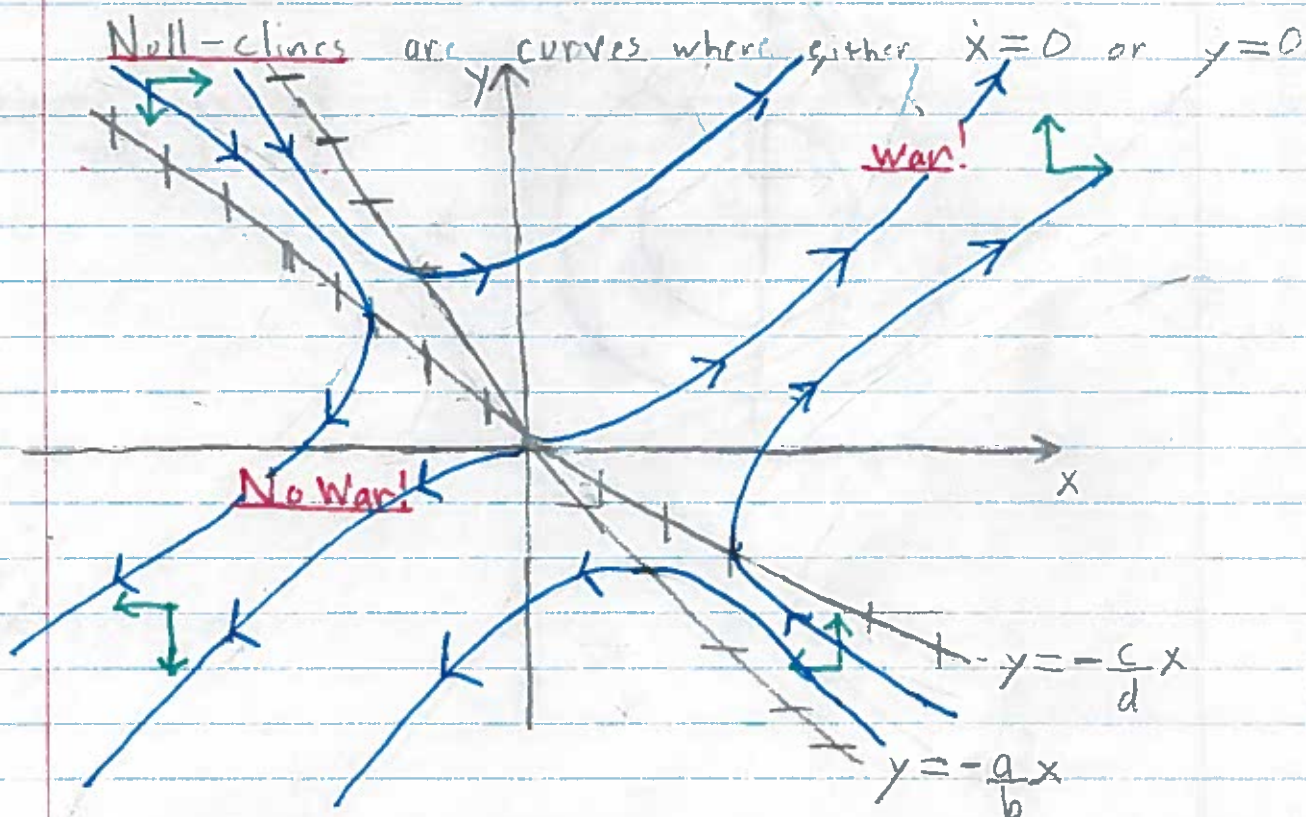 Null-clines are curves where either ẋ = 0 or y = 0
y
war!
x
No War!
y = -c/d x
y = -a/b x